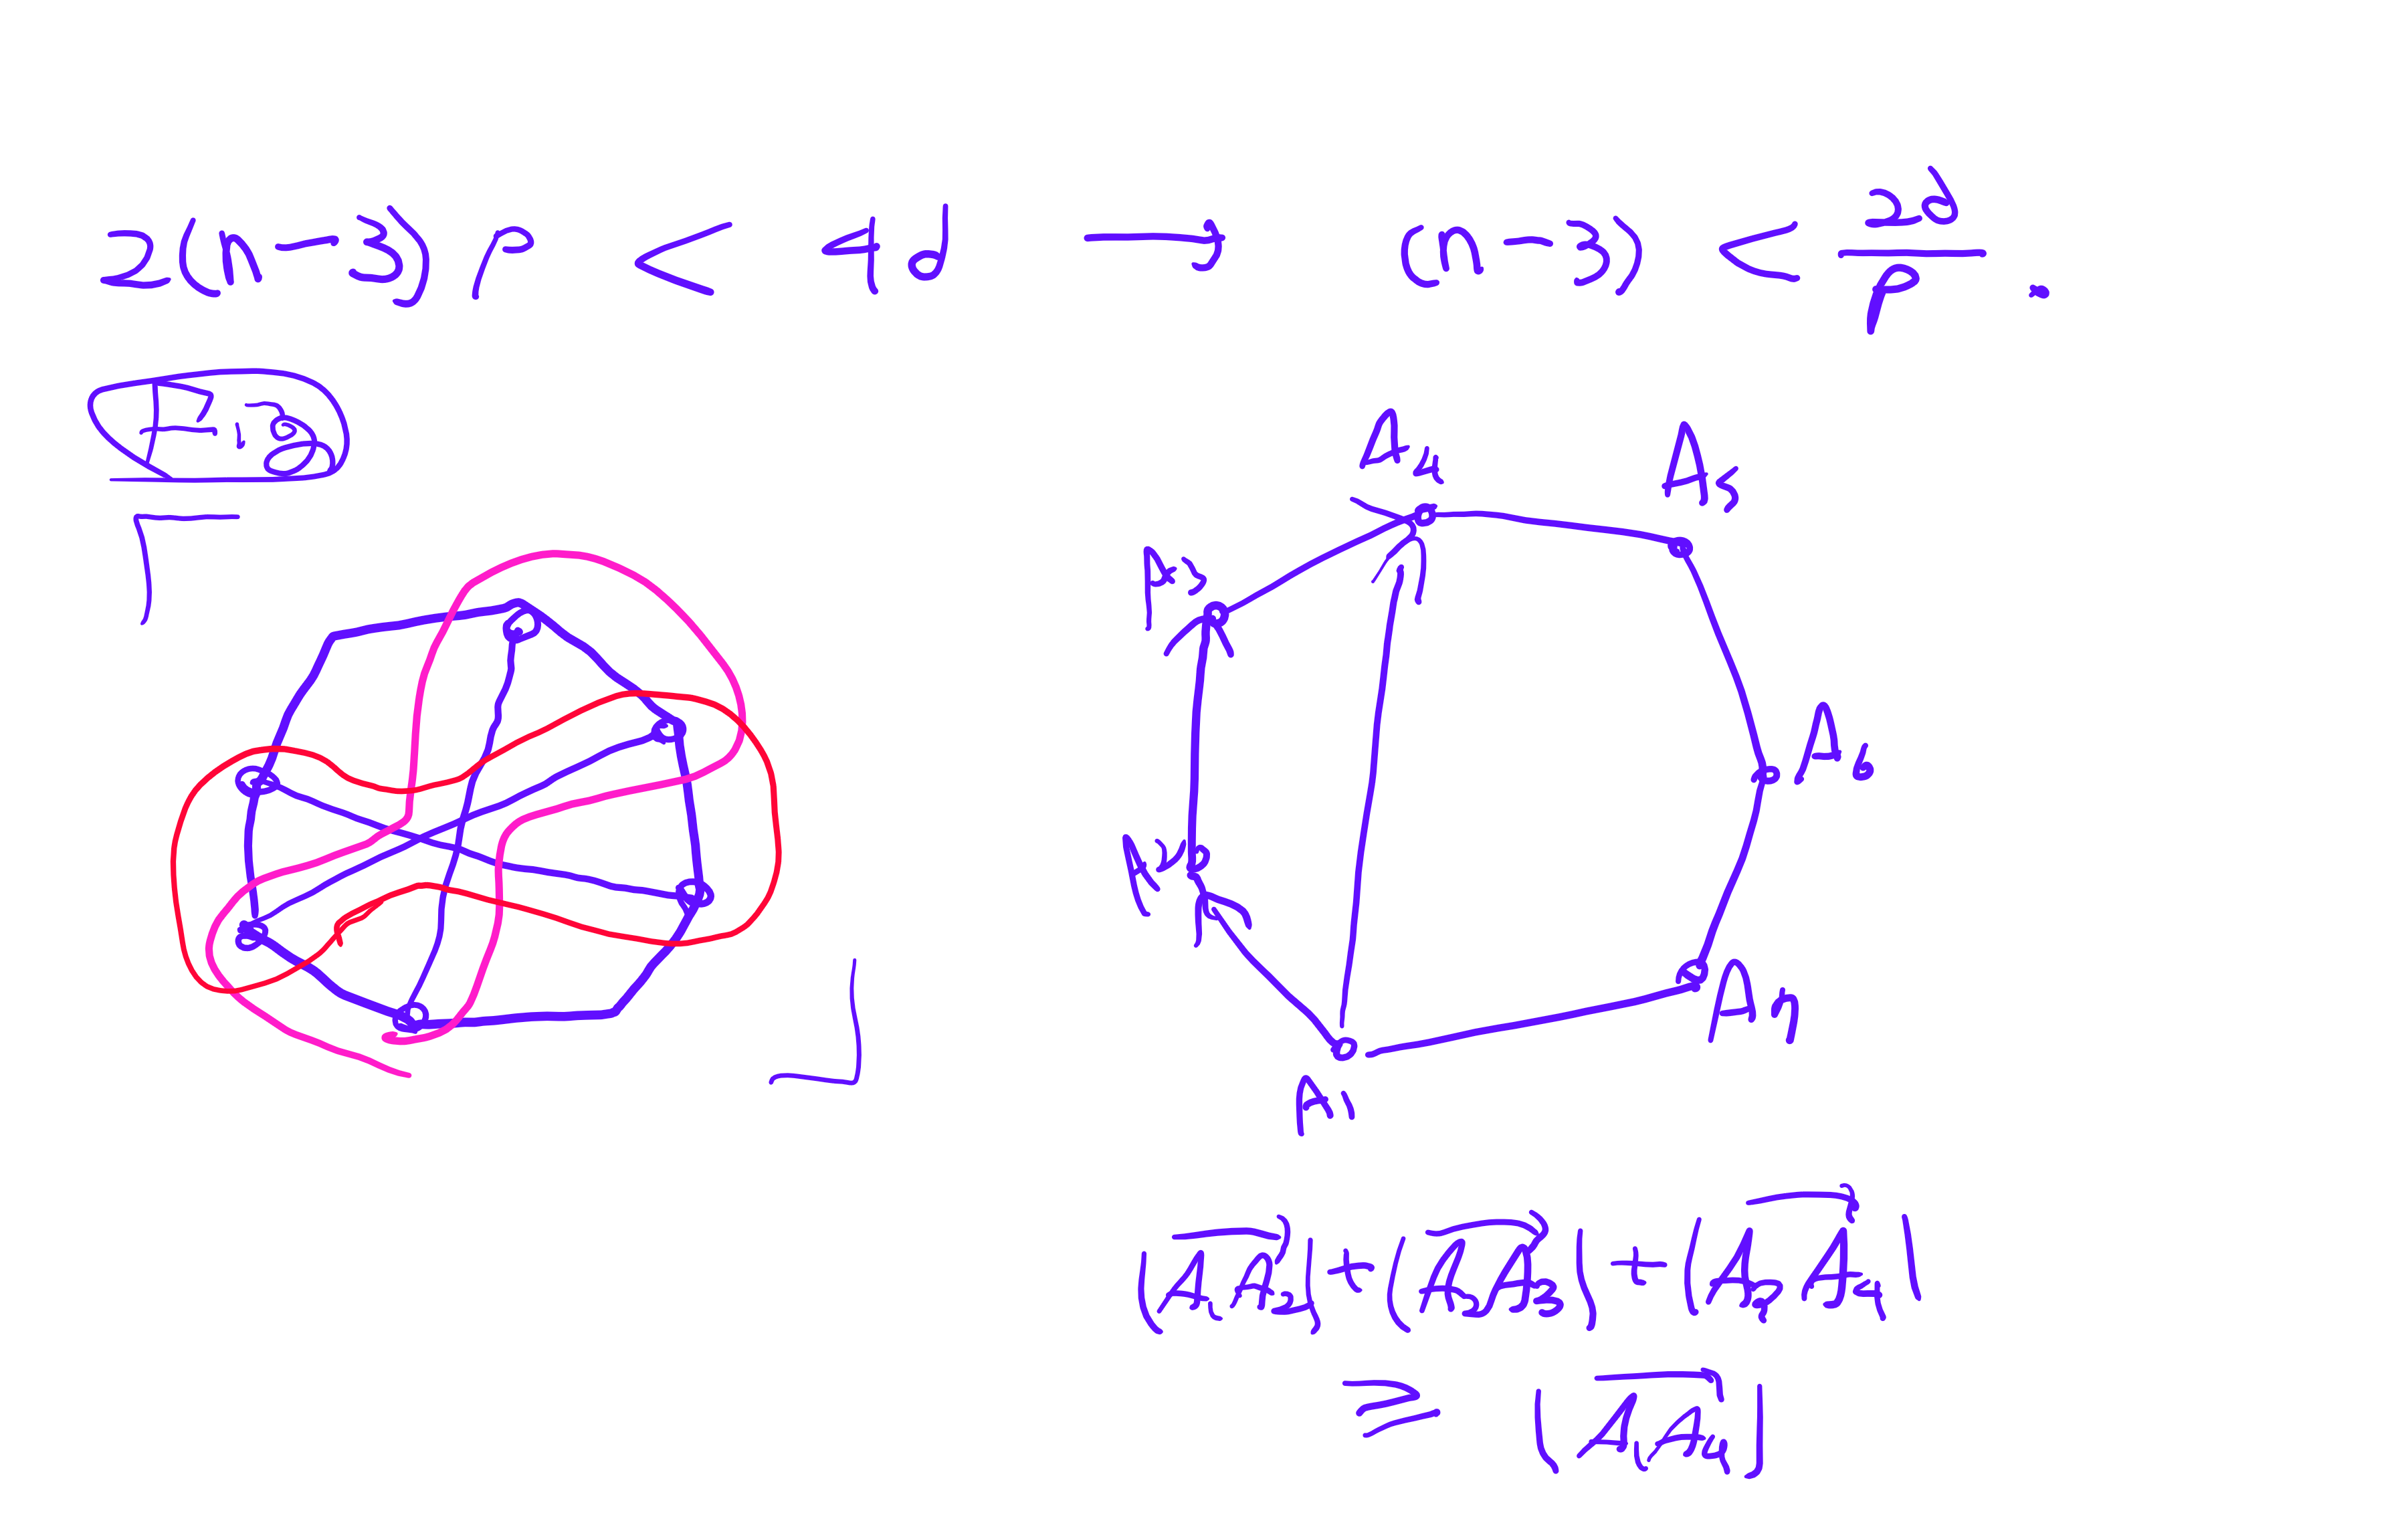 2(n-3)p < 4d → (n-3) < 2d/p .
A4
A5
A3
A6
A2
An
A1
|A1A2| + |A2A3| + |A3A4|
≥ |A1A4|